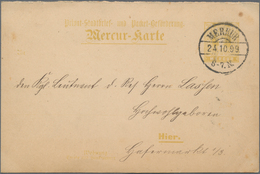 Privat-Briefverkehr- und Packet-Beförderung
Mercur-Karte
MERKUR
24.10.99
6-7.N.
den Kgl. Lieutenant d. Res. Herrn Lassen
Hochwohlgeboren
Hier.
Hafermarkt